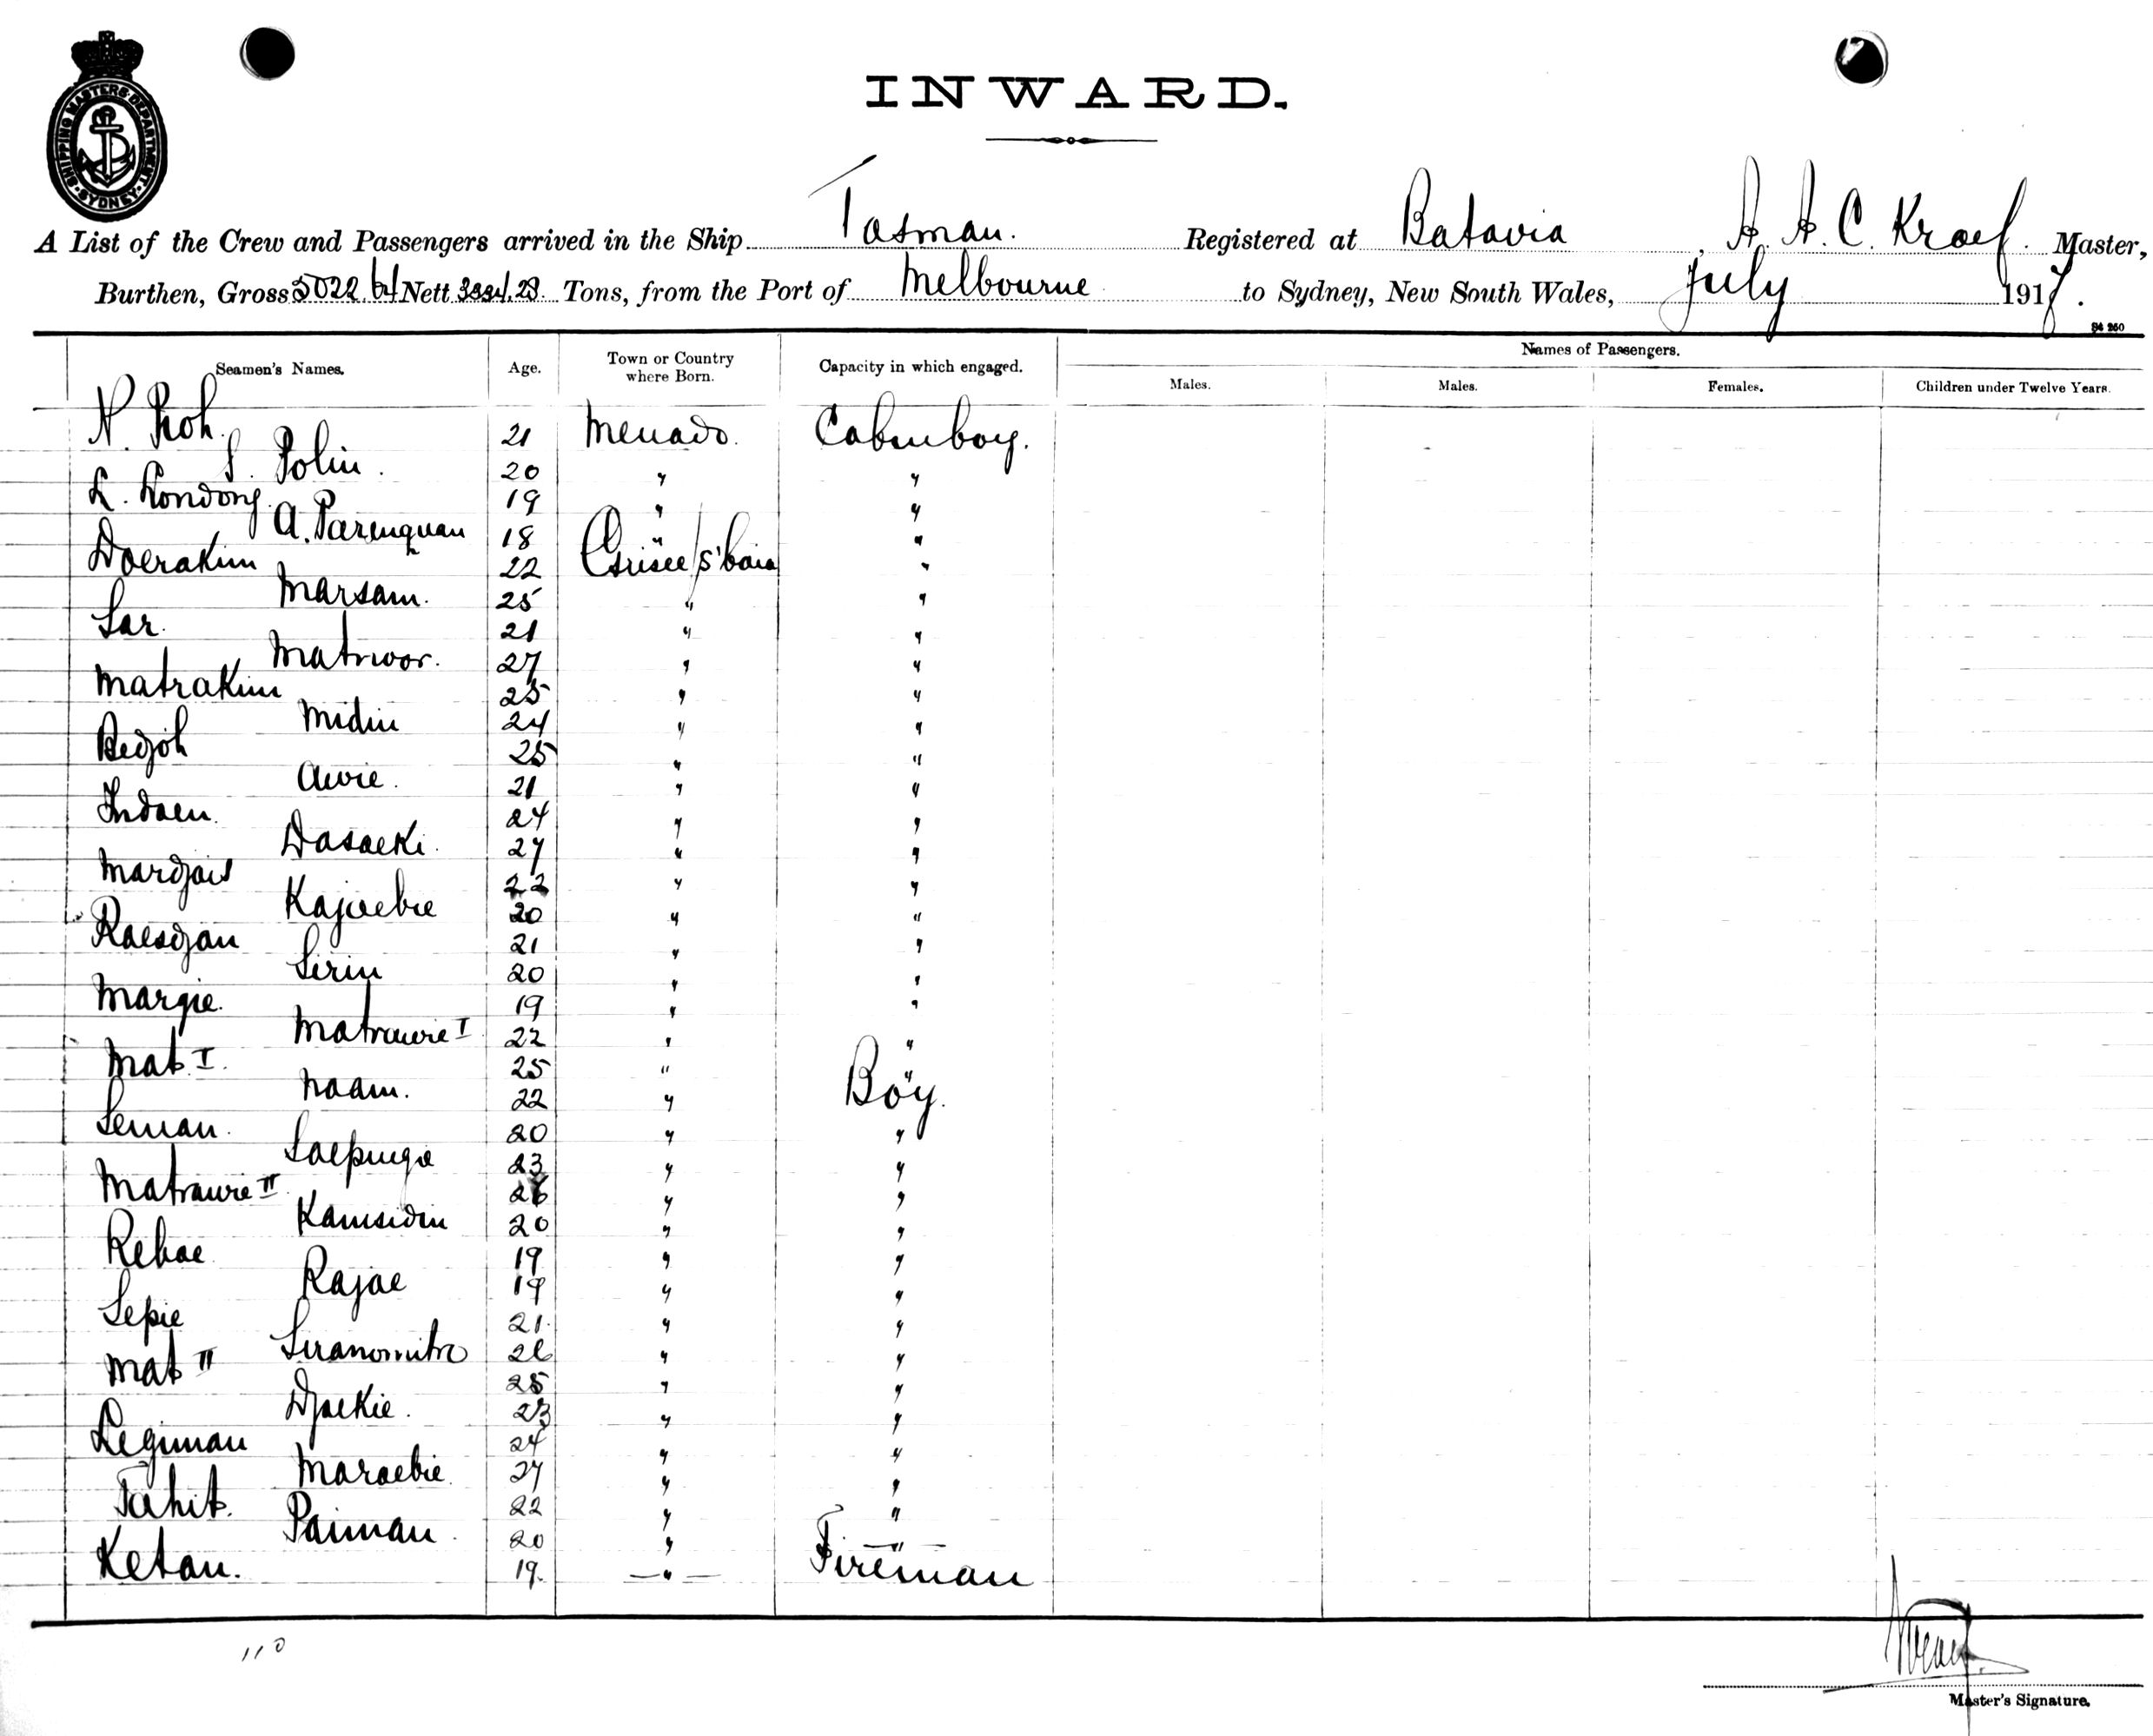 SHIPPING MASTERS DEPARTMENT SYDNEY
INWARD.
A List of the Crew and Passengers arrived in the Ship Tasman. Registered at Batavia, A. A. C. Kraef. Master,
Burthen, Gross 5022 Nett Tons, from the Port of Melbourne to Sydney, New South Wales, July 1917.
St 260
Seamen's Names. Age. Town or Country where Born. Capacity in which engaged. Names of Passengers.
Males. Males. Females. Children under Twelve Years.
N. Roh. 21 Menado. Cabinboy.
S. Polin. 20 " "
L. Londong. 19 " "
A. Parenquan 18 " "
Doerakim 22 Grisee/S'baia "
Marsam. 25 " "
Sar. 21 " "
Matnoor. 27 " "
Matrakim 25 " "
Midin 24 " "
Bedjoh 25 " "
Awie. 21 " "
Indoen. 24 " "
Dasoeki. 27 " "
Mardjais 22 " "
Kajoebie 20 " "
Raesdjan 21 " "
Sirin 20 " "
Margie. 19 " "
Matrawie I 22 " "
Mat I. 25 " "
Naam. 22 " Boy.
Seman. 20 " "
Saepingie 23 " "
Matrawie II 26 " "
Kamsidin 20 " "
Rebae 19 " "
Rajae 19 " "
Sepie 21. " "
Siranomitro 26 " "
Mat II 25 " "
Djaekie. 23 " "
Legiman 24 " "
Maraebie. 27 " "
Tahit. 22 " "
Paiman. 20 " "
Ketan. 19. " Fireman
110
Master's Signature.